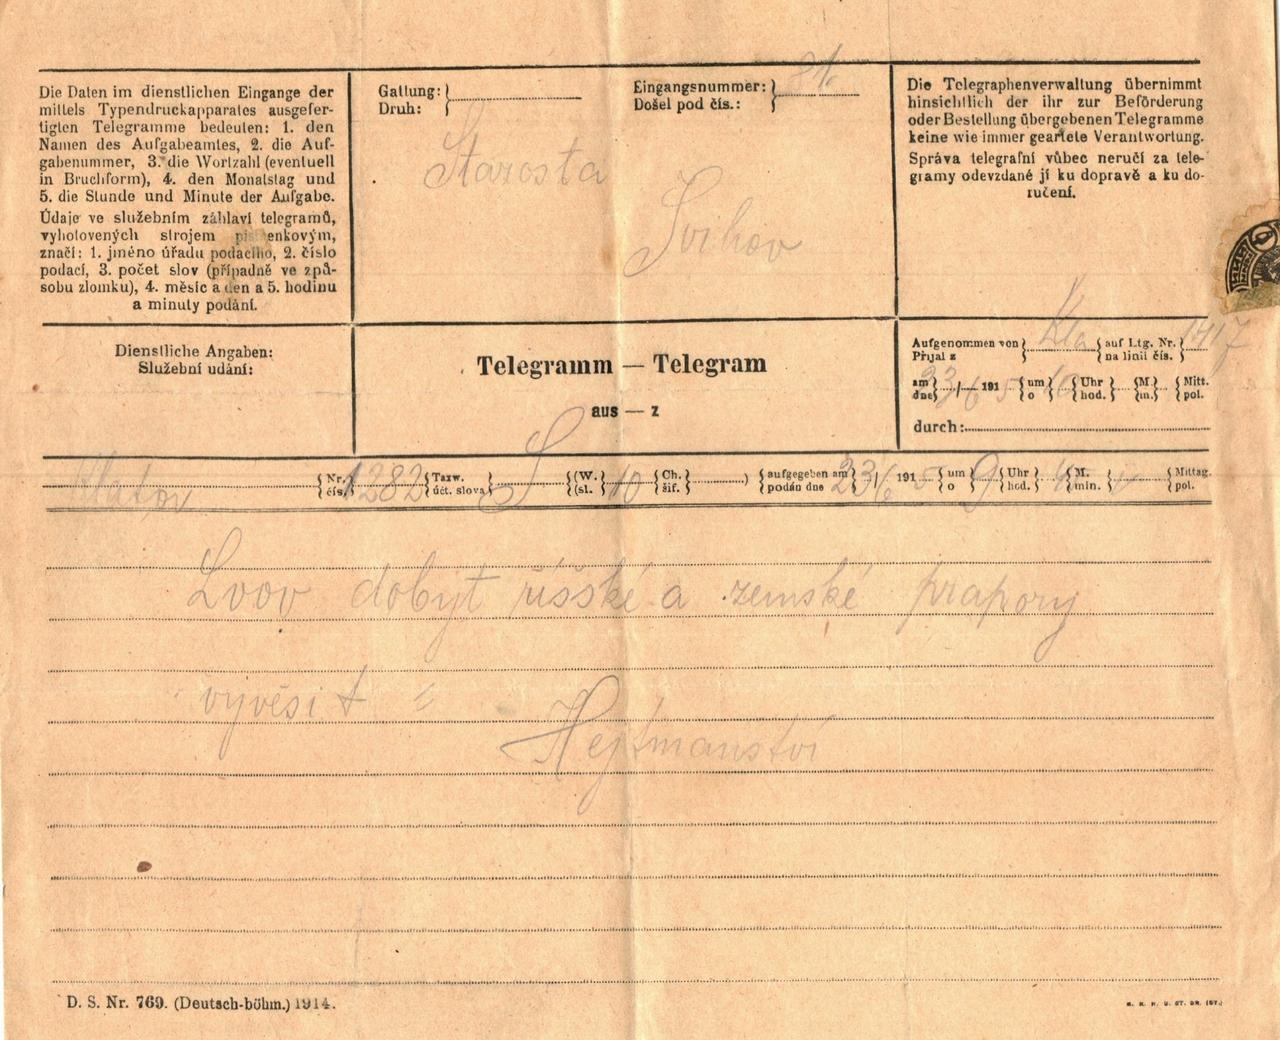 Die Daten im dienstlichen Eingange der
mittels Typendruckapparates ausgefer-
tigten Telegramme bedeuten: 1. den
Namen des Aufgabeamtes, 2. die Auf-
gabenummer, 3. die Wortzahl (eventuell
in Bruchform), 4. den Monatstag und
5. die Stunde und Minute der Aufgabe.
Údaje ve služebním záhlaví telegramů,
vyhotovených strojem enkovým,
značí: 1. jméno úřadu podacího, 2. číslo
podací, 3. počet slov (případně ve způ-
sobu zlomku), 4. měsíc a den a 5. hodinu
a minuty podání.
Gattung:
Druh:
Eingangsnummer:
Došel pod čís.:
Starosta
Švihov
Die Telegraphenverwaltung übernimmt
hinsichtlich der ihr zur Beförderung
oder Bestellung übergebenen Telegramme
keine wie immer geartete Verantwortung.
Správa telegrafní vůbec neručí za tele-
gramy odevzdané jí ku dopravě a ku do-
ručení.
Dienstliche Angaben:
Služební udání:
Telegramm — Telegram
aus — z
Aufgenommen von Kla auf Ltg. Nr. 1417
Přijal z na linii čís.
am 23/6 1915 um 10 Uhr M. Mitt.
dne o hod. m. pol.
durch:
Klatov Nr. 1282 Taxw. S (W. 10 Ch. ) aufgegeben am 23/6 1915 um 9 Uhr M. Mittag.
čís. účt. slova (sl. šif. podán dne o hod. min. pol.
Lvov dobyt říšské a zemské prapory
vyvěsit =
Hejtmanství
D. S. Nr. 769. (Deutsch-böhm.) 1914.